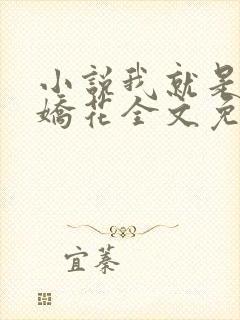 小说我就是
娇花全文免
宜蓁